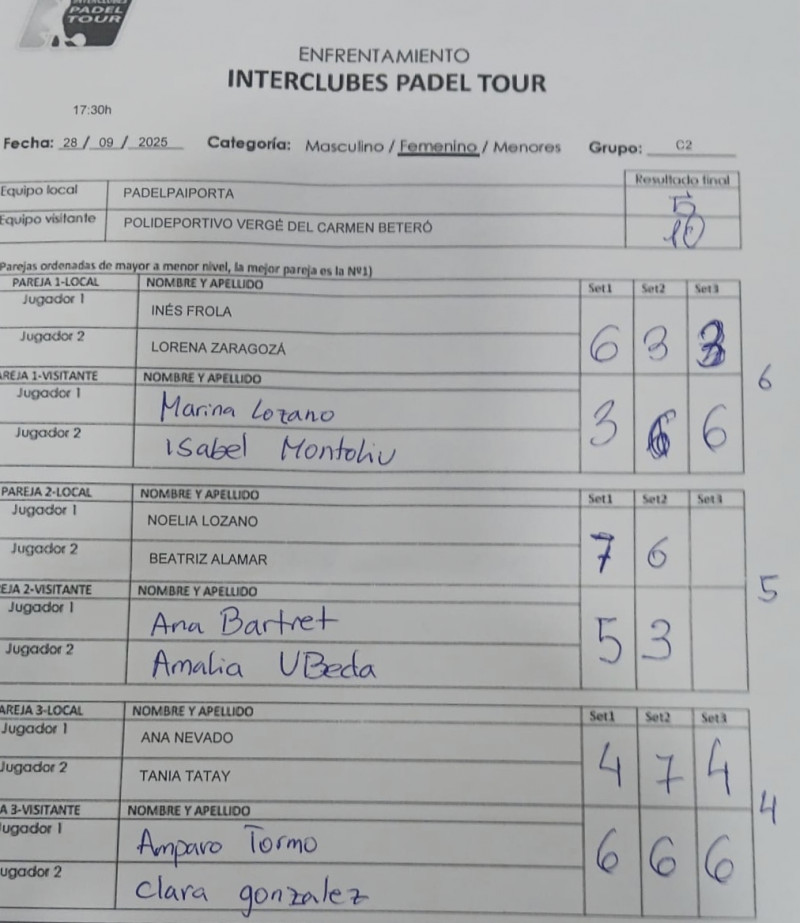 INTERCLUBES
PADEL
TOUR
ENFRENTAMIENTO
INTERCLUBES PADEL TOUR
17:30h
Fecha: 28 / 09 / 2025 Categoría: Masculino / Femenino / Menores Grupo: C2
Resultado final
Equipo local PADELPAIPORTA 5
Equipo visitante POLIDEPORTIVO VERGÉ DEL CARMEN BETERÓ 10
Parejas ordenadas de mayor a menor nivel, la mejor pareja es la Nº1)
PAREJA 1-LOCAL NOMBRE Y APELLIDO Set1 Set2 Set3
Jugador 1 INÉS FROLA
Jugador 2 LORENA ZARAGOZÁ 6 3 3
AREJA 1-VISITANTE NOMBRE Y APELLIDO 6
Jugador 1 Marina Lozano
Jugador 2 Isabel Montoliu 3 6 6
PAREJA 2-LOCAL NOMBRE Y APELLIDO Set1 Set2 Set3
Jugador 1 NOELIA LOZANO
Jugador 2 BEATRIZ ALAMAR 7 6
EJA 2-VISITANTE NOMBRE Y APELLIDO 5
Jugador 1 Ana Bartret
Jugador 2 Amalia UBeda 5 3
AREJA 3-LOCAL NOMBRE Y APELLIDO Set1 Set2 Set3
Jugador 1 ANA NEVADO
Jugador 2 TANIA TATAY 4 7 4
A 3-VISITANTE NOMBRE Y APELLIDO 4
ugador 1 Amparo Tormo
ugador 2 clara gonzalez 6 6 6